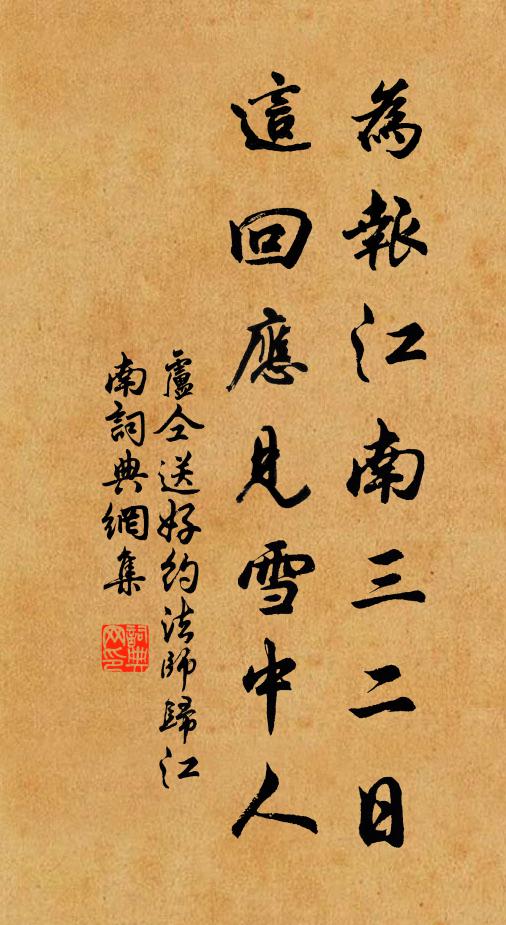 為報江南三二日
這回應見雪中人
盧仝送好約法師歸江
南詞典網集
詞典
网印